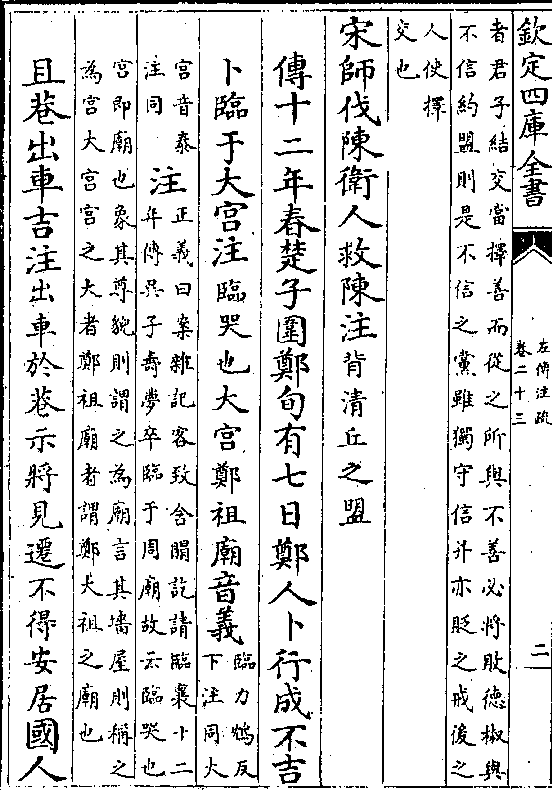 欽定四庫全書
左傳注疏
卷二十三
二
者君子結交當擇善而從之所與不善必將敗德椒與
不信約盟則是不信之黨雖獨守信并亦貶之戒後之
人使擇
交也
宋師伐陳衛人救陳注背清丘之盟
傳十二年春楚子圍鄭旬有七日鄭人卜行成不吉
卜臨于大宮注臨哭也大宮鄭祖廟音義臨力鴆反
下注同大
宮音泰
注同
注正義曰案雜記客致含賵訖請臨襄十二
年傳吳子壽夢卒臨于周廟故云臨哭也
宮即廟也象其尊貌則謂之為廟言其墻屋則稱之
為宮大宮宮之大者鄭祖廟者謂鄭大祖之廟也
且巷出車吉注出車於巷示將見遷不得安居國人